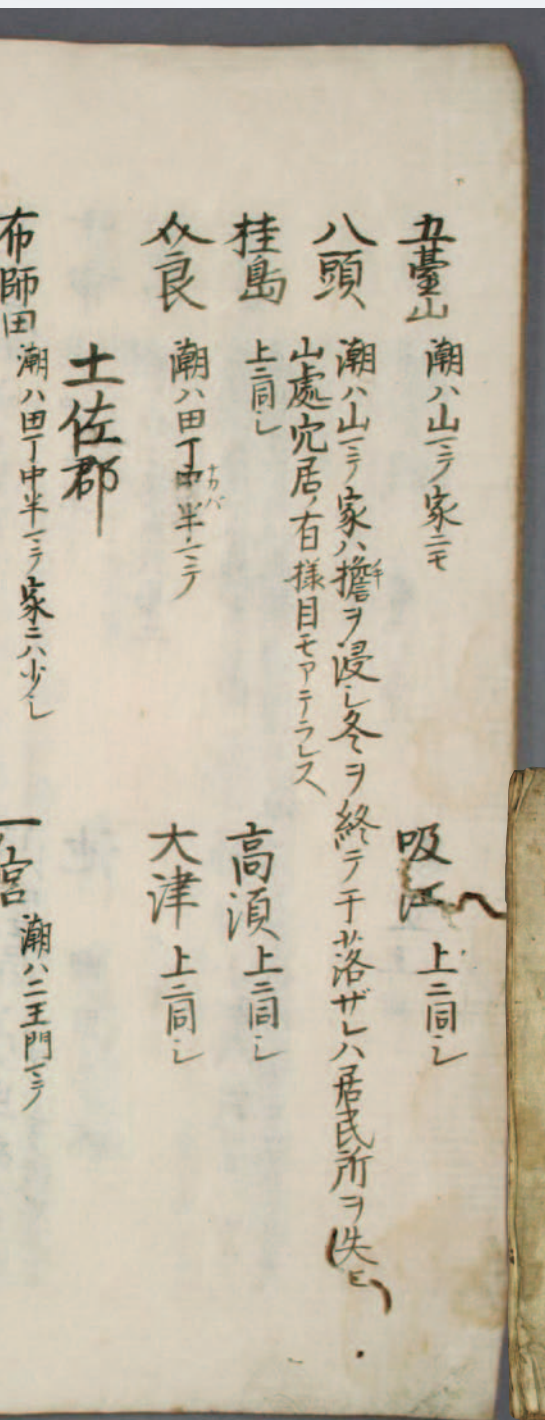 五臺山 潮ハ山マテ家ニモ 吸江 上ニ同し
八頭 潮ハ山マテ家ハ擔ヲ浸し冬ヲ終テ干落ザレハ居民所ヲ失ヒ
山處穴居ノ有様目モアテラレス
桂島 上ニ同し 高須 上ニ同し
介良 潮ハ田丁中半マテ 大津 上ニ同し
ナカバ
土佐郡
布師田 潮ハ田丁中半マテ家ニハ少し 一ノ宮 潮ハ二王門マテ